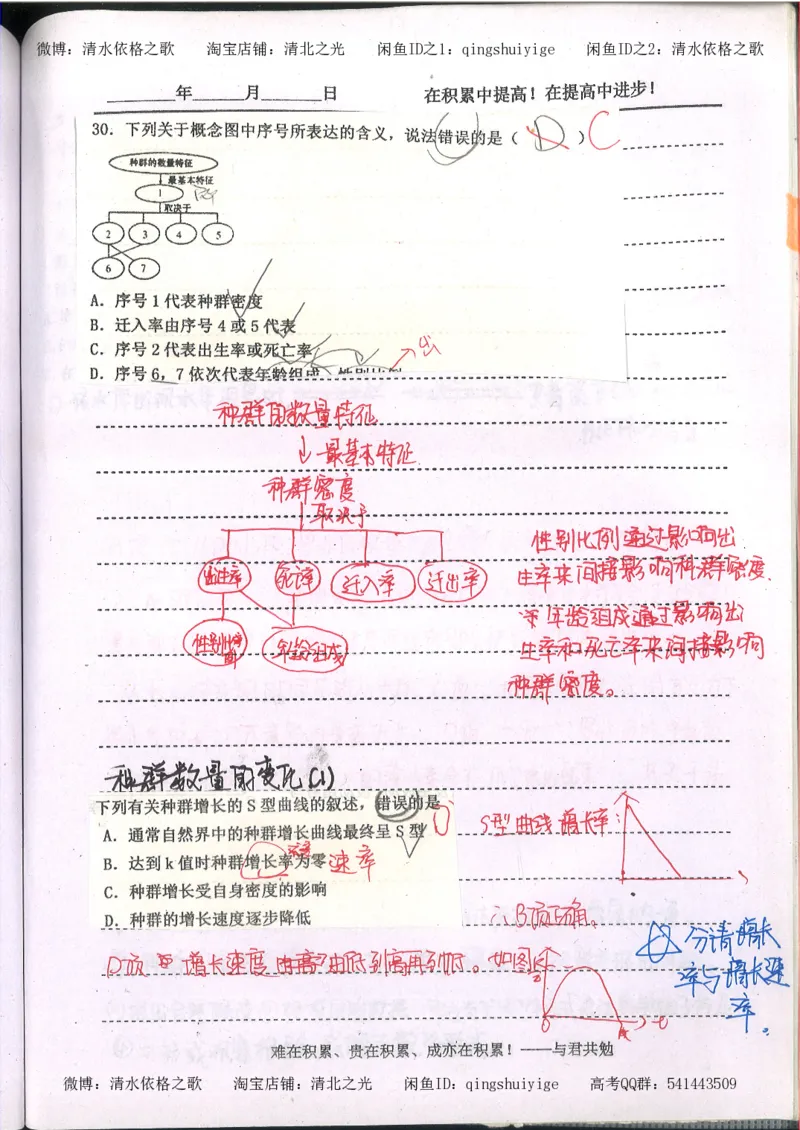 微博：清水依格之歌 淘宝店铺：清北之光 闲鱼ID之1：qingshuiyige 闲鱼ID之2：清水依格之歌
年 月 日 在积累中提高！在提高中进步！
30．下列关于概念图中序号所表达的含义，说法错误的是（ D ） C
种群的数量特征
最基本特征
1
取决于
2 3 4 5
6 7
A．序号1代表种群密度
B．迁入率由序号4或5代表
C．序号2代表出生率或死亡率
出
D．序号6，7依次代表年龄组成、性别比例
种群的数量特征
↓最基本特征
种群密度
取决于
出生率 死亡率 迁入率 迁出率
性别比例 年龄组成
性别比例通过影响出
生率来间接影响种群密度.
年龄组成通过影响出
生率和死亡率来间接影响
种群密度。
种群数量的变化(1)
下列有关种群增长的S型曲线的叙述，错误的是 D
A．通常自然界中的种群增长曲线最终呈S型
B．达到k值时种群增长率为零 速率
C．种群增长受自身密度的影响
D．种群的增长速度逐步降低
S型曲线增长率：
∴B项正确。
增长速度由低到高再到低。如图
t
分清增长
率与增长速
率。
难在积累、贵在积累、成亦在积累！——与君共勉
微博：清水依格之歌 淘宝店铺：清北之光 闲鱼ID：qingshuiyige 高考QQ群：541443509